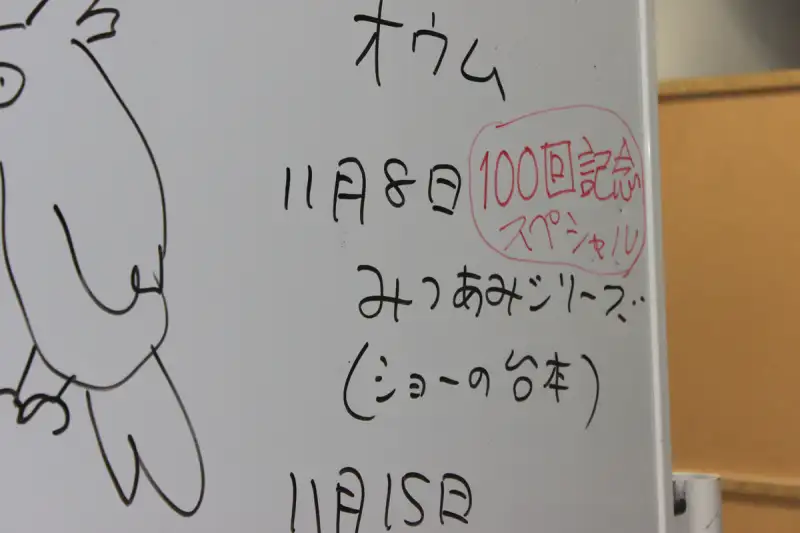 オウム
11月8日
100回記念
スペシャル
みつあみシリーズ
(ショーの台本)
11月15日